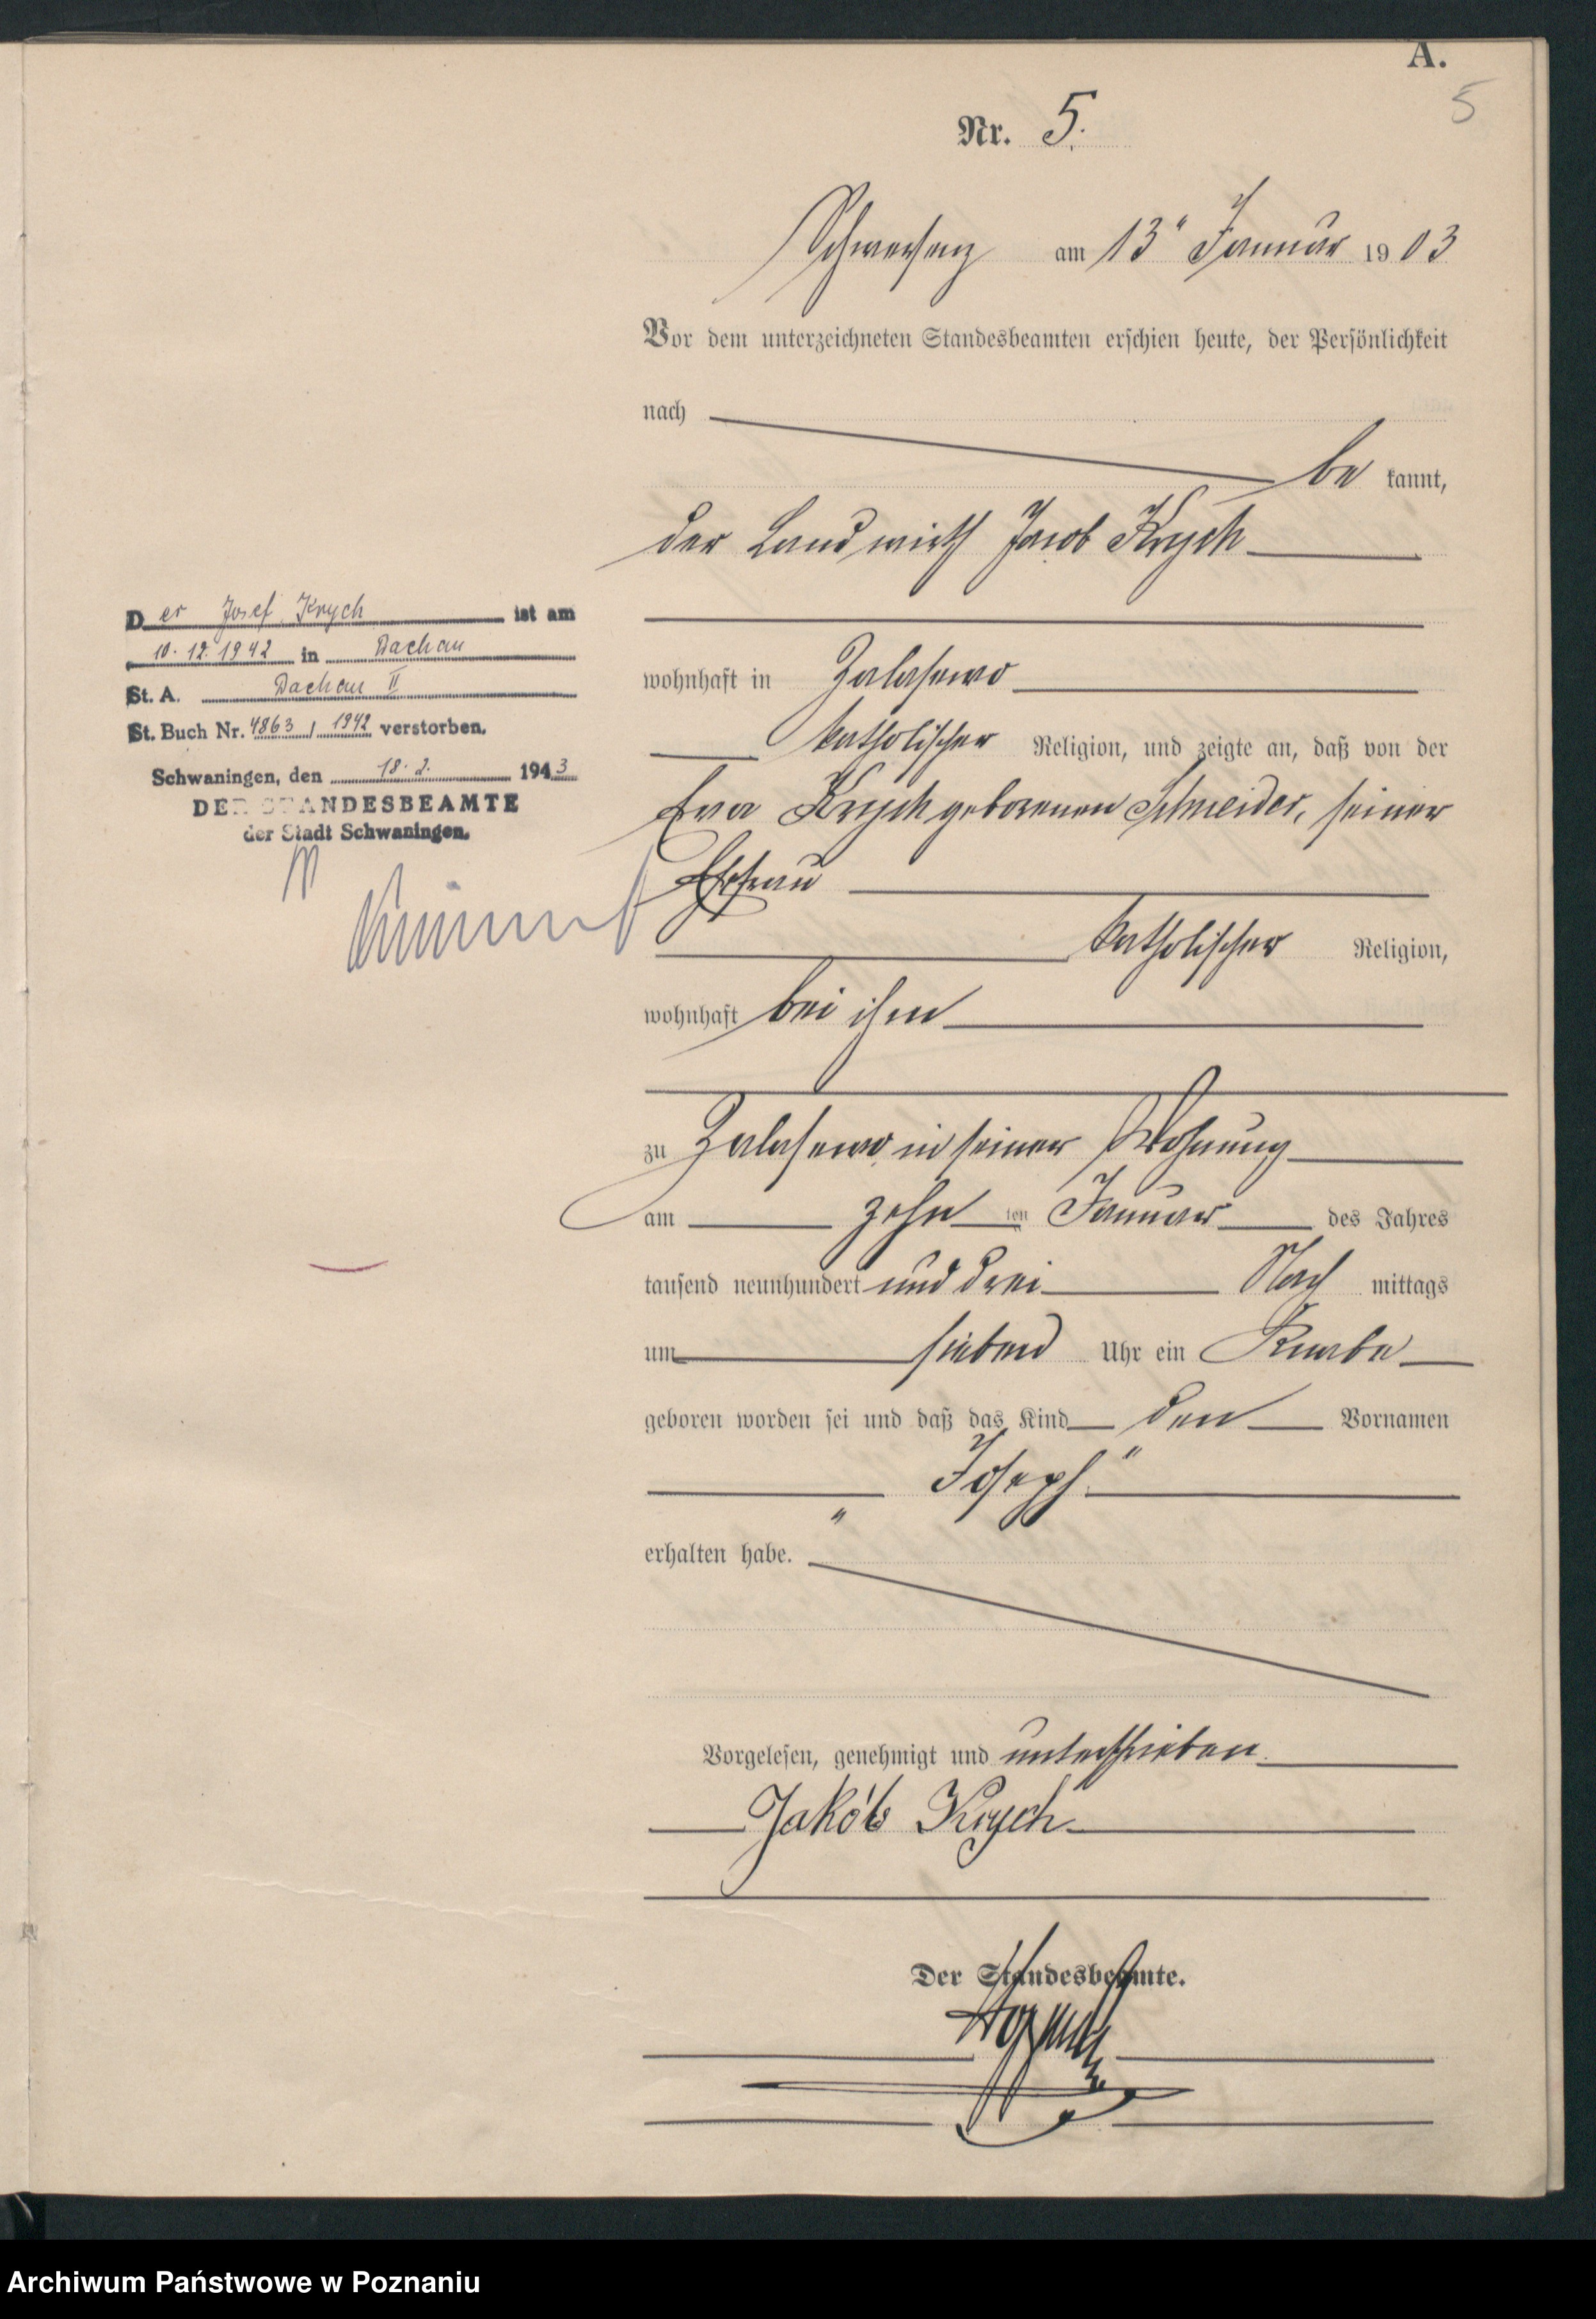 A.
5
Nr. 5.
Schwersenz am 13" Januar 1903
Vor dem unterzeichneten Standesbeamten erschien heute, der Persönlichkeit
nach
be kannt,
der Landwirth Jacob Krych
wohnhaft in Zalasewo
katholischer Religion, und zeigte an, daß von der
Eva Krych geborenen Schneider, seiner
Ehefrau
katholischer Religion,
wohnhaft bei ihm
zu Zalasewo in seiner Wohnung
am zehn ten Januar des Jahres
tausend neunhundert und drei Nach mittags
um sieben Uhr ein Knabe
geboren worden sei und daß das Kind den Vornamen
„Joseph"
erhalten habe.
Vorgelesen, genehmigt und unterschrieben.
Jakób Krych
Der Standesbeamte.
Der Josef Krych ist am
10.12.1942 in Dachau
St. A. Dachau II
St. Buch Nr. 4863 / 1942 verstorben.
Schwaningen, den 18.2. 1943
DER STANDESBEAMTE
der Stadt Schwaningen.
Archiwum Państwowe w Poznaniu